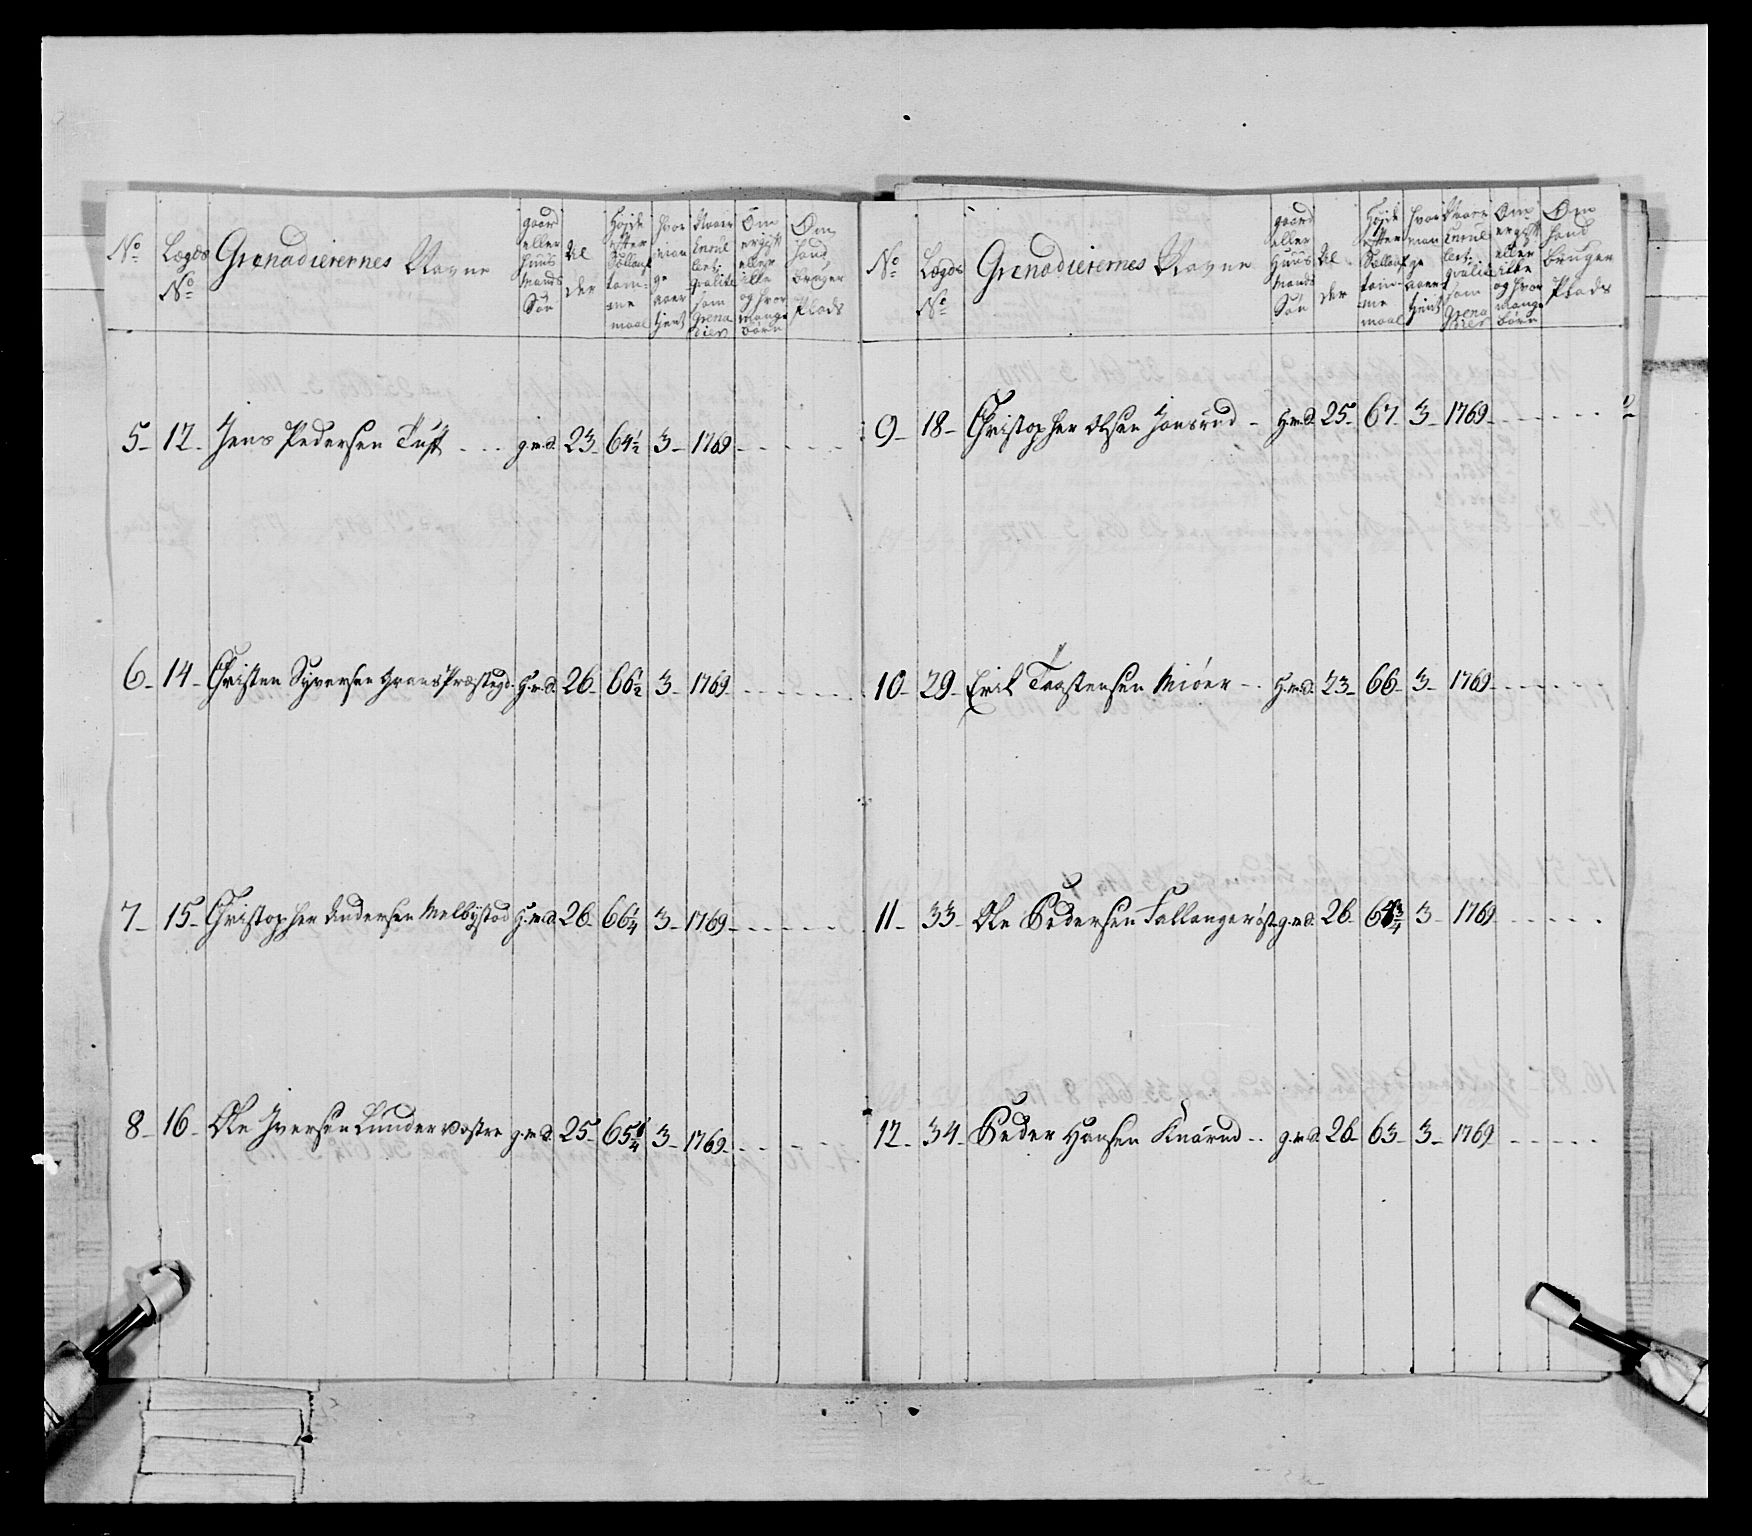 No Lægds No Grenadierernes Navne gaard eller Huus Mands Søn Al der Høide efter Sællandsk tomme maal hvor mange aar tient Naar Enrul lert som Grena dier Om ergift eller ikke og hvor mange børn Om hand bruger Plads
5 - 12 - Jens Pedersen Tuft . . . g.m.S. 23 - 64½ 3 - 1769 - - - - -
6 - 14 - Christen Syversen Grans Præstegd. H.m.S. 26 - 66½ 3 - 1769 - - - - -
7 - 15 - Christopher Andersen Melbystad H.m.S. 26 - 66¼ 3 - 1769 - - - - -
8 - 16 - Ole Iversen Lunder vestre g.m.S. 25 - 65¼ 3 - 1769 - - - - -
No Lægds No Grenadierernes Navne gaard eller Huus Mands Søn Al der Høide efter Sællandsk tomme maal hvor mange aar tient Naar Enrul lert som Grena dier Om ergift eller ikke og hvor mange børn Om hand bruger Plads
9 - 18 - Christopher Olsen Jonsrud - H.m.S. 25 - 67 - 3 - 1769 - - - - -
10 - 29 - Erik Trostensen Miöer - H.m.S. 23 - 66 - 3 - 1769 - - - - -
11 - 33 - Ole Pedersen Fallanger g.m.S. 26 - 3 - 1769 - - - - -
12 - 34 - Peder Hansen Knarud - - g.m.S. 26 - 63 - 3 - 1769 - - - - -